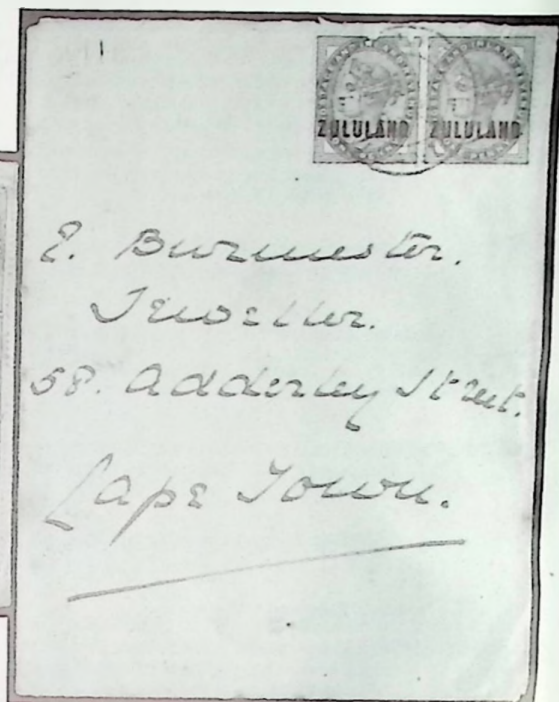 ZULULAND ZULULAND
E. Burmester.
Jeweller.
58. Adderley Street.
Cape Town.